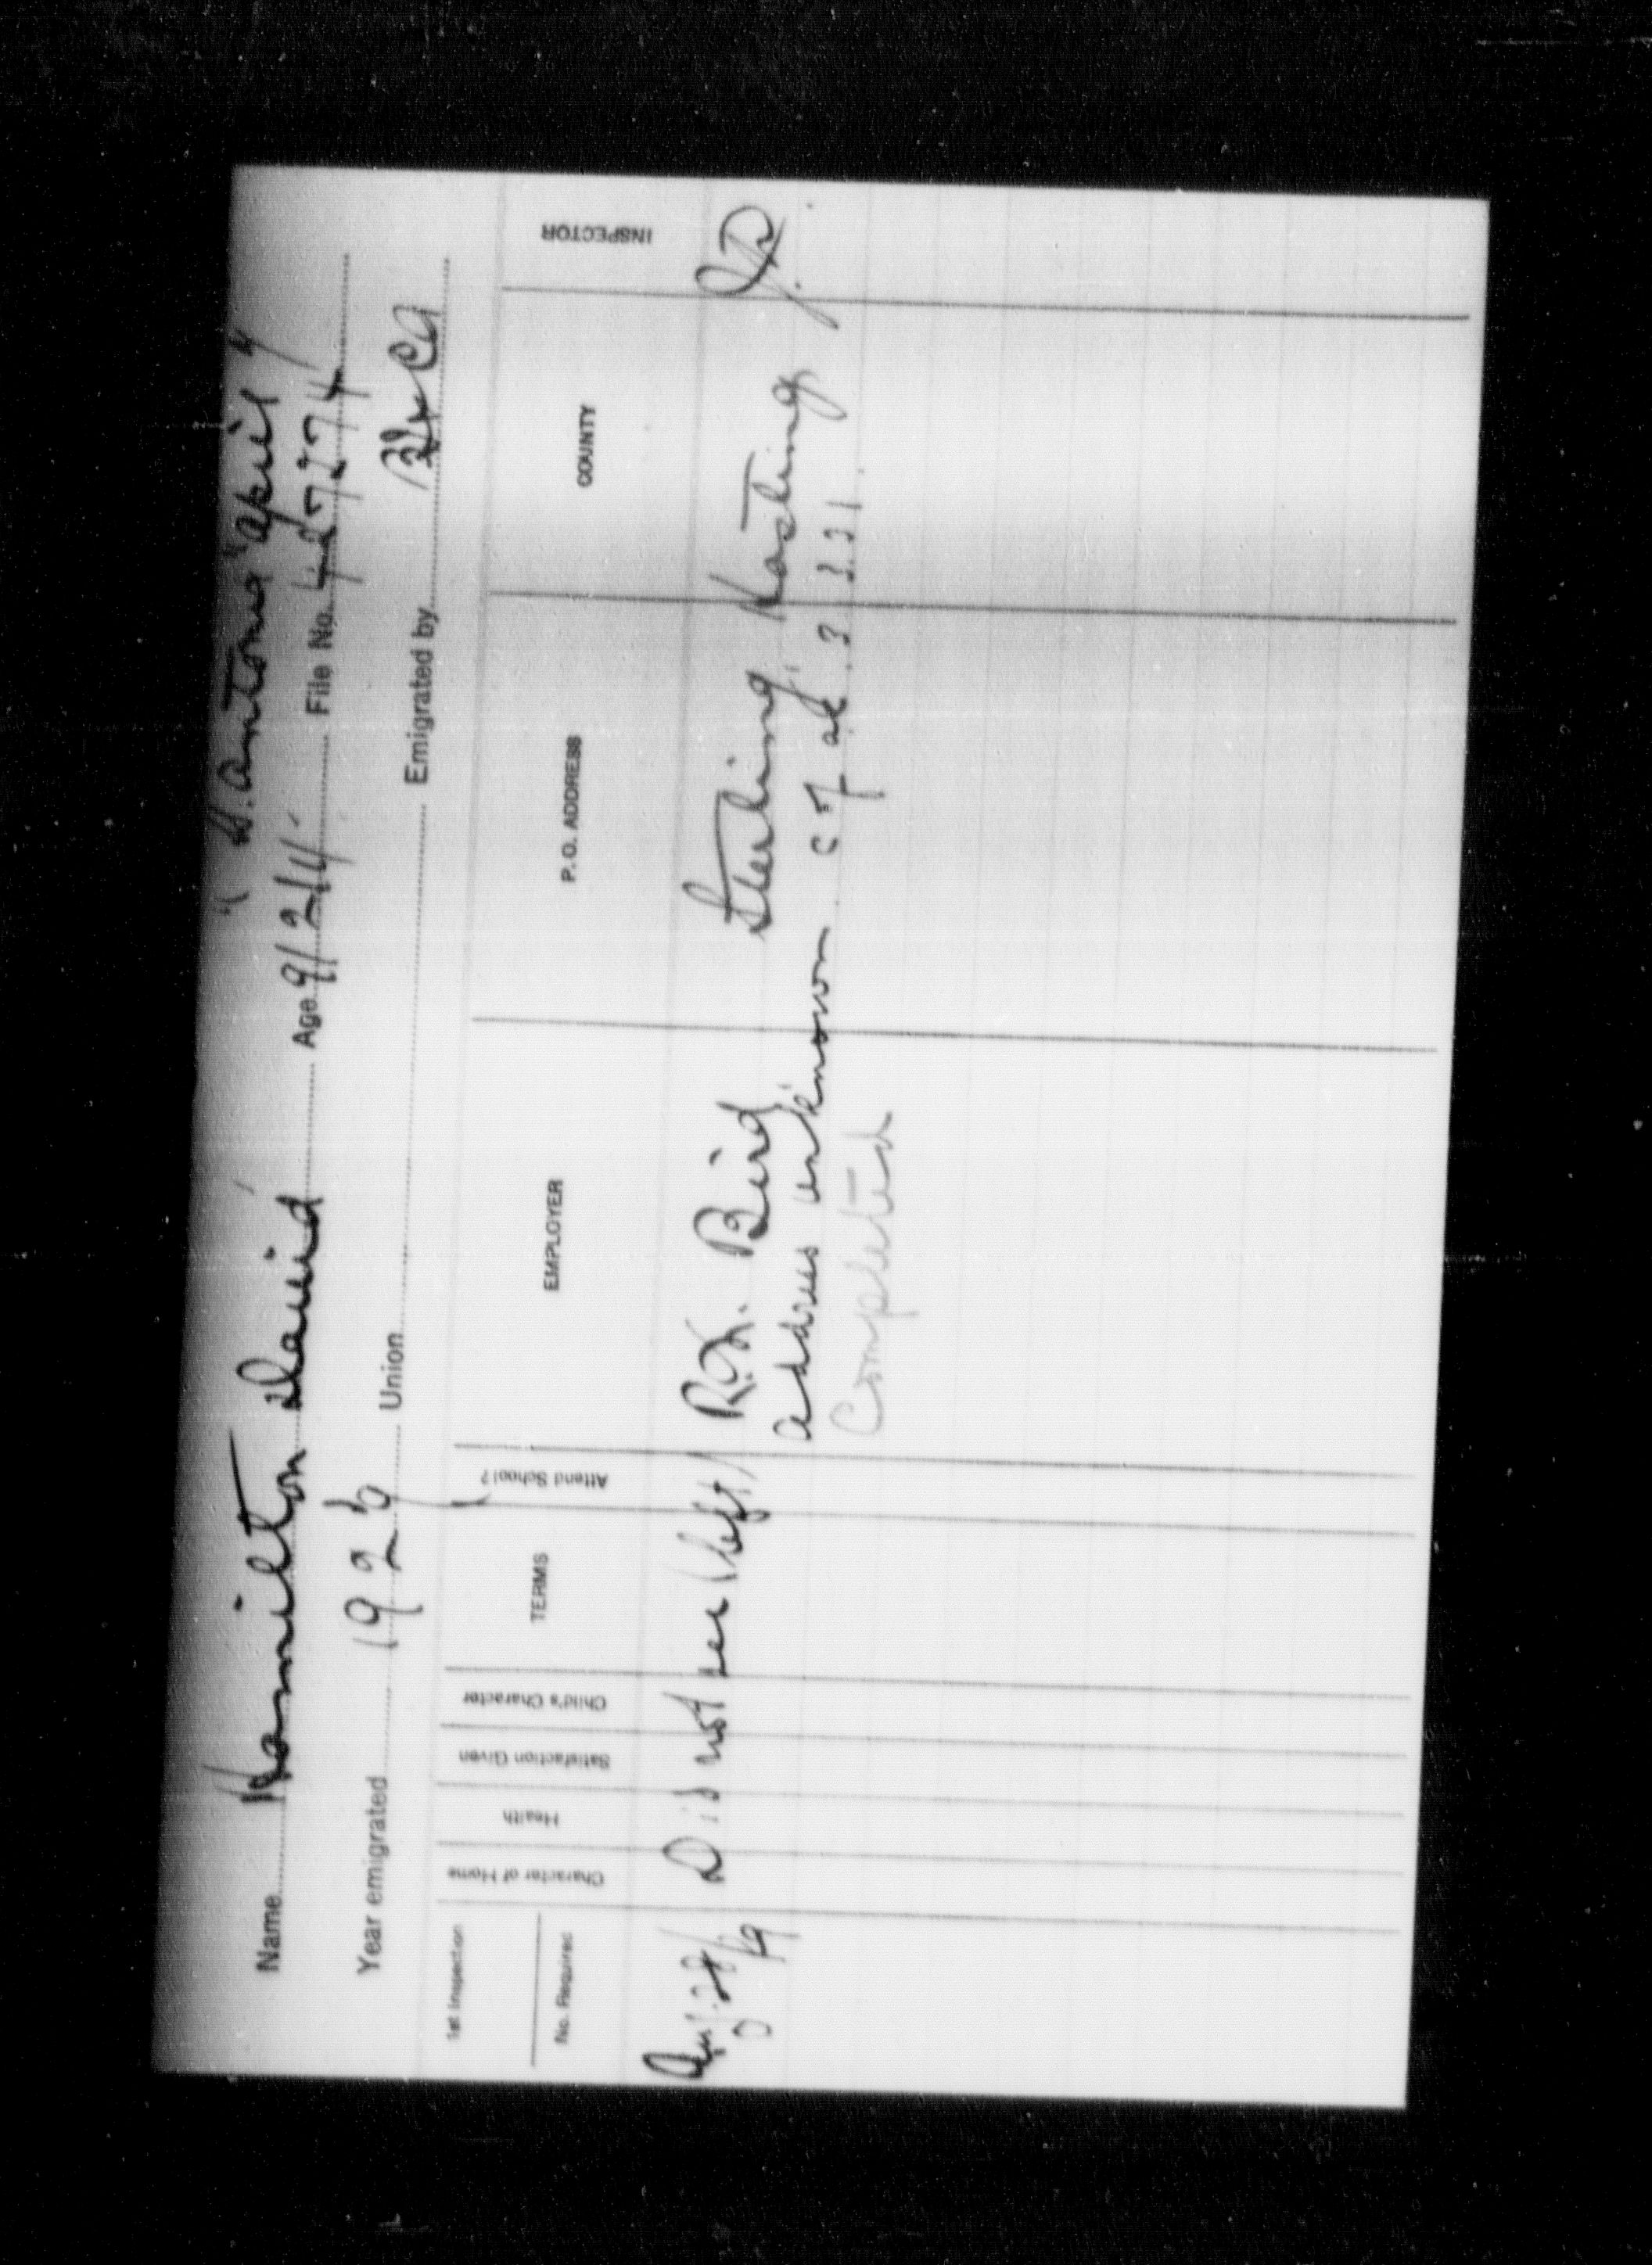 " S.S. Antonia" April 4
Name Hamilton David Age 9/2/11 File No. 427274
Year emigrated 1926 Union Emigrated by CA
1st Inspection
No. Required
Character of Home Health Satisfaction Given Child's Character TERMS Attend School? EMPLOYER P.O. ADDRESS COUNTY INSPECTOR
Aug. 28/29 Did not see (left) R.K. Bird Sterling Hastings
address unknown C of at 3 3.31
Completed